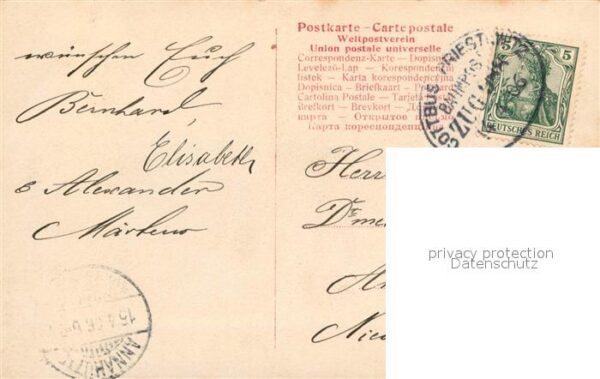 wünschen Euch
Bernhard,
Elisabeth
& Alexander
Märtens
Postkarte – Carte postale
Weltpostverein
Union postale universelle
Correspondenz-Karte – Dopisnice
Levelező-Lap – Korespondenční
listek – Karta korespondencyjna
Dopisnica – Briefkaart –
Cartolina Postale – Tarjeta
Brefkort – Brevkort –
карта – Открытое письмо
Карта кореспонденційна
5 5
DEUTSCHES REICH
COTTBUS GRIESTEWITZ
BAHNPOST
ZUG
Herr
Dr med
An
Nie
privacy protection
Datenschutz
ANNAHÜTTE
15.4.06